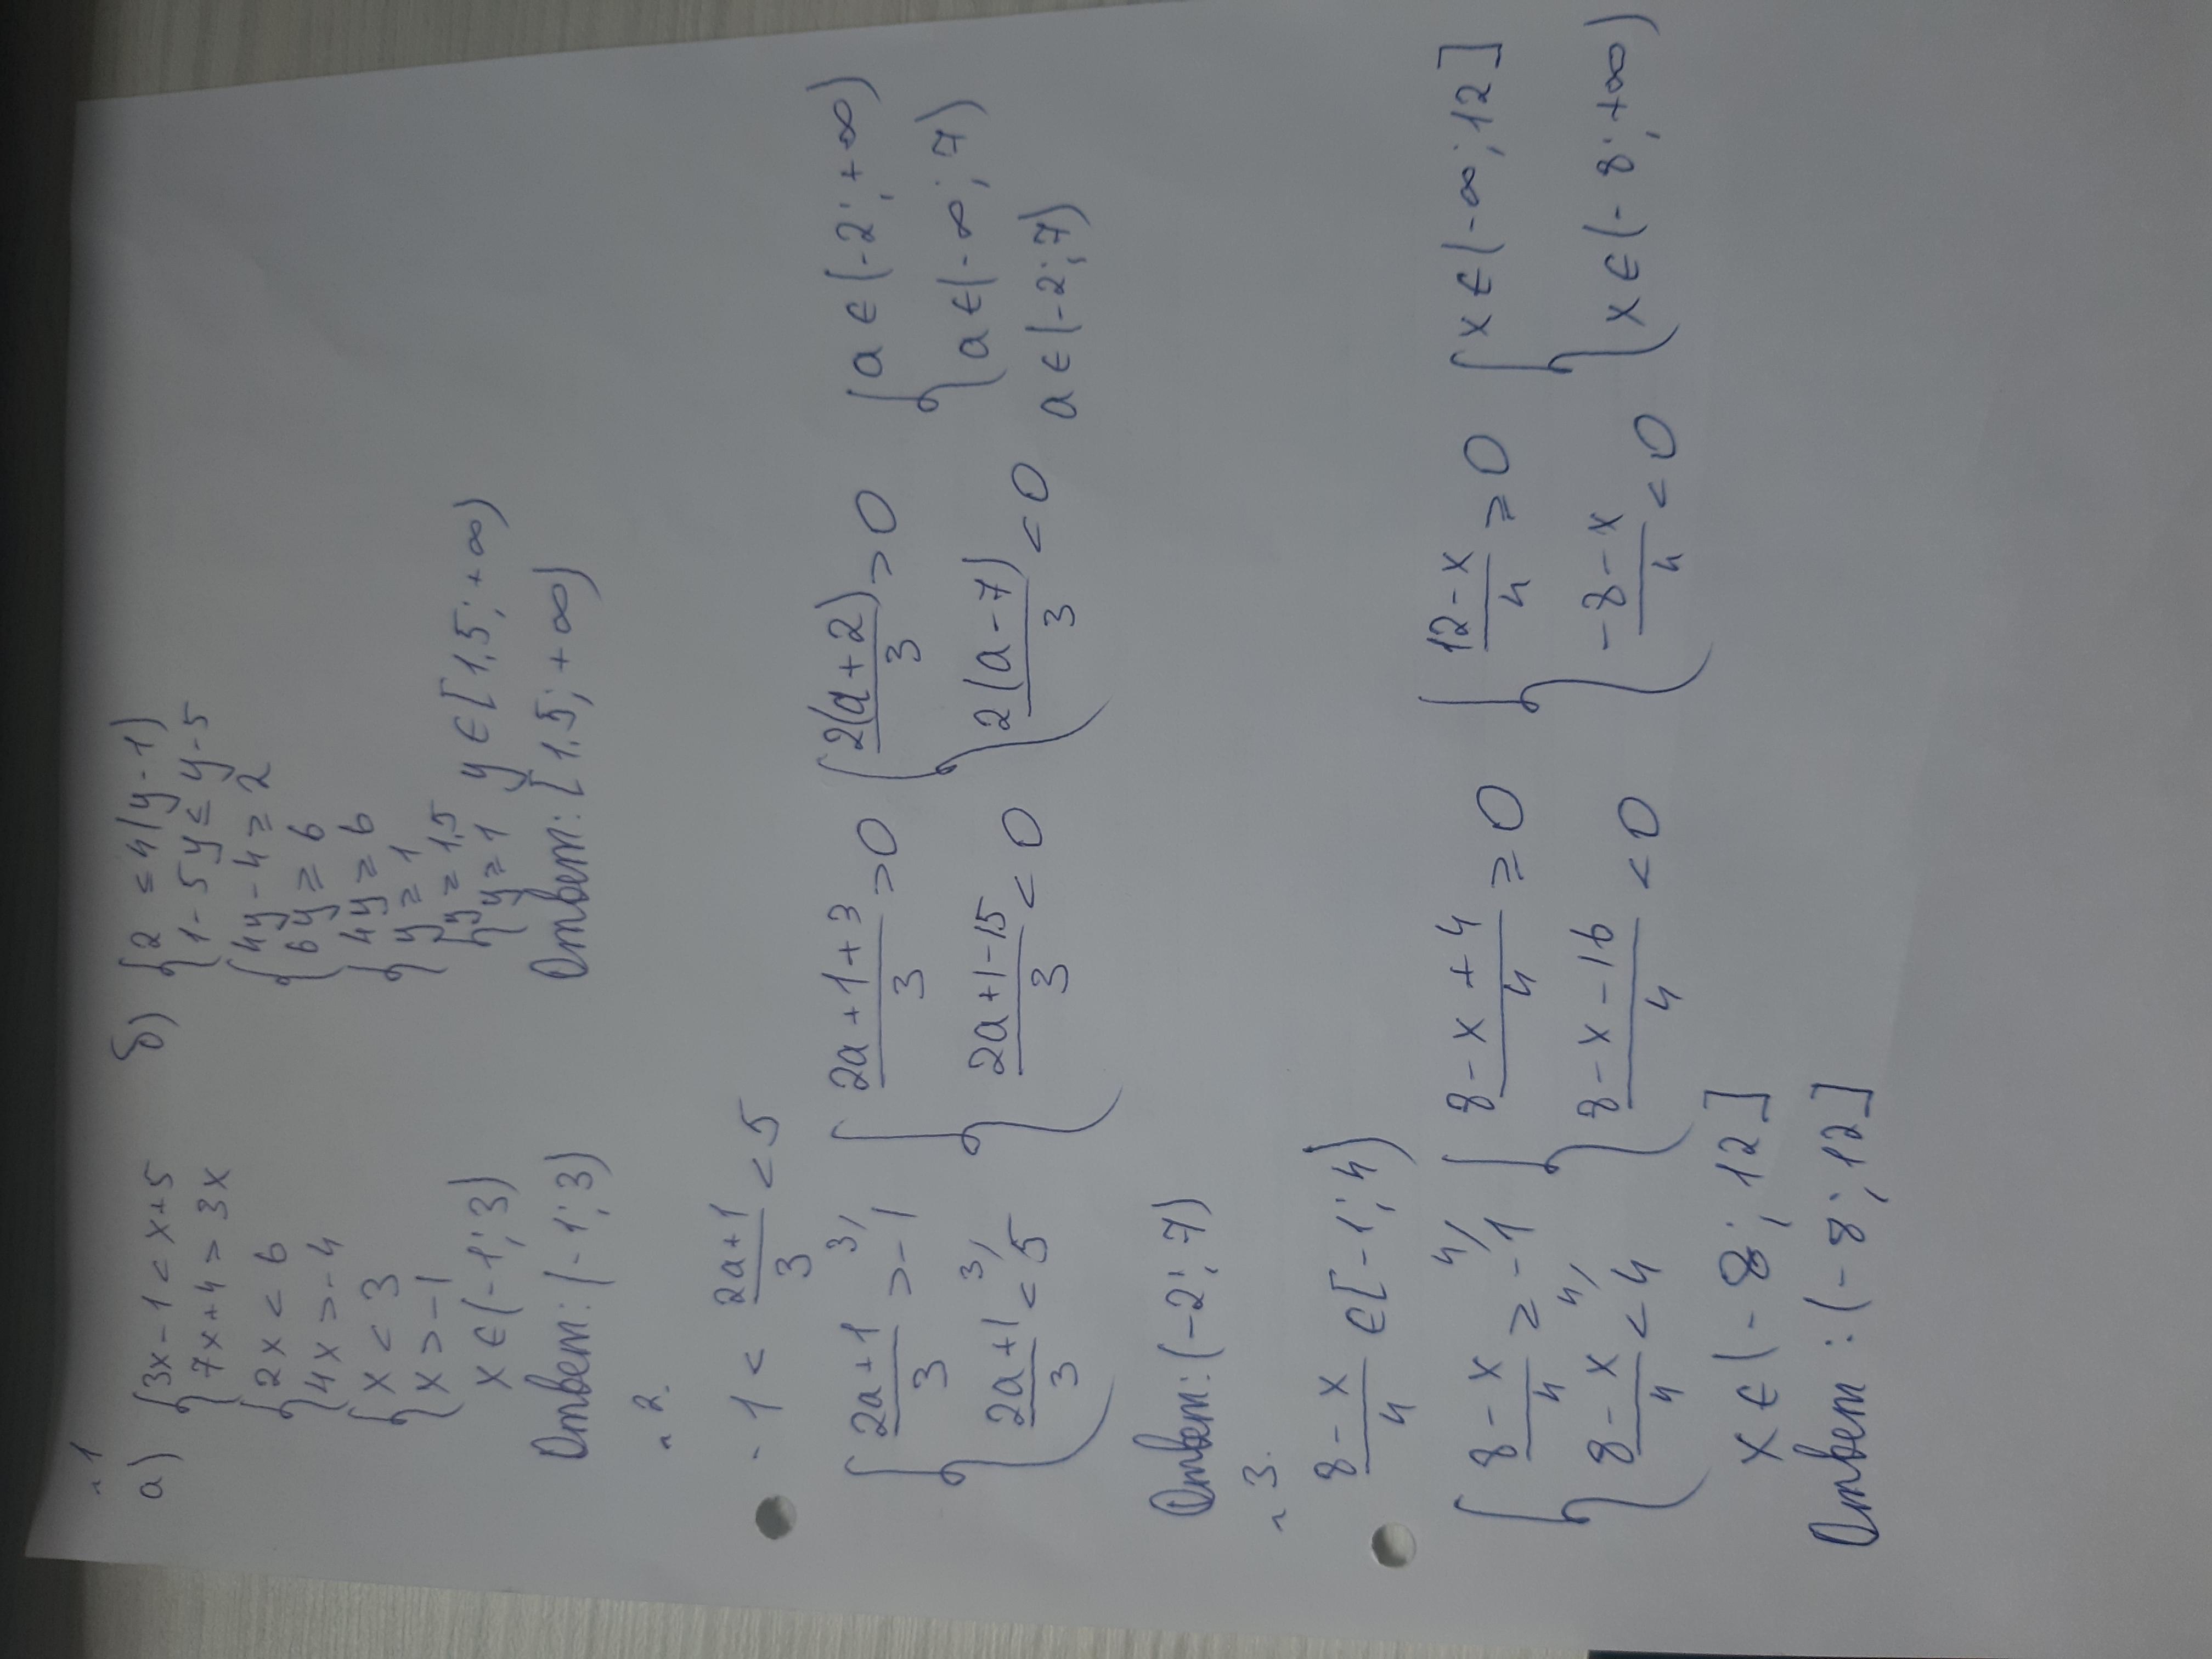 ~ 1
а) { 3x - 1 < x + 5
7x + 4 > 3x
{ 2x < 6
4x > -4
{ x < 3
x > -1
x ∈ (-1; 3)
Ответ: (-1; 3)
б) { 2 ≤ 4(y - 1)
1 - 5y ≤ y - 5
{ 4y - 4 ≥ 2
6y ≥ 6
{ 4y ≥ 6
y ≥ 1
{ y ≥ 1,5
y ≥ 1 y ∈ [1,5; +∞)
Ответ: [1,5; +∞)
~ 2.
-1 < (2a+1)/3 < 5
{ (2a+1)/3 > -1 3/ { (2a+1+3)/3 > 0 { 2(a+2)/3 > 0 { a ∈ (-2; +∞)
(2a+1)/3 < 5 3/ (2a+1-15)/3 < 0 2(a-7)/3 < 0 a ∈ (-∞; 7)
a ∈ (-2; 7)
Ответ: (-2; 7)
~ 3.
(8-x)/4 ∈ [-1; 4)
{ (8-x)/4 ≥ -1 4/ { (8-x+4)/4 ≥ 0 { (12-x)/4 ≥ 0 { x ∈ (-∞; 12]
(8-x)/4 < 4 4/ (8-x-16)/4 < 0 (-8-x)/4 < 0 x ∈ (-8; +∞)
x ∈ (-8; 12]
Ответ: (-8; 12]